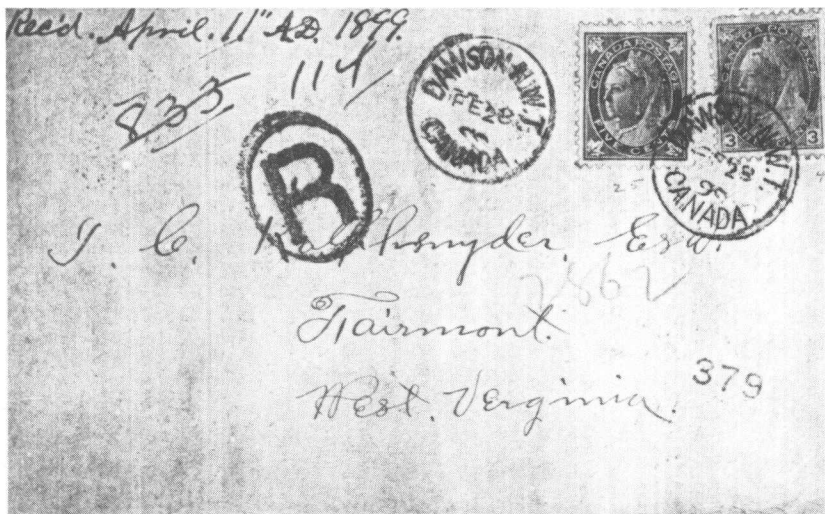 Rec'd. April. 11" A.D. 1899.
833
114
DAWSON N.W.T.
FE 28
99
CANADA
CANADA POSTAGE
FIVE CENTS
CANADA POSTAGE
3
3
DAWSON N.W.T.
28
99
CANADA
25
R
Esq.
2862
Fairmont.
West. Verginia.
379